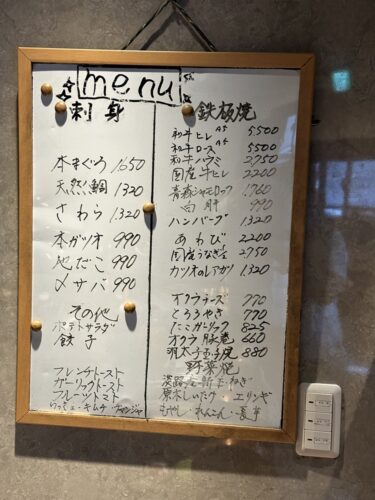 menu
刺身
本まぐろ 1650
天然鯛 1320
さわら 1320
本ガツオ 990
地だこ 990
〆サバ 990
その他
ポテトサラダ
餃子
フレンチトースト
ガーリックトースト
フルーツトマト
キムチ・チャンジャ
鉄板焼
和牛ヒレ A5 5500
和牛ロース A5 5500
和牛ハラミ 2750
国産牛ヒレ 2200
青森シャモロック 1760
白肝 990
ハンバーグ 1320
あわび 2200
国産うなぎ 2750
カツオのレアカツ 1320
オクラチーズ 770
とろろやき 770
たこガーリック 825
オクラ豚巻 660
明太子玉子焼 880
野菜焼
淡路 新玉ねぎ
原木しいたけ エリンギ
もやし・れんこん・長芋